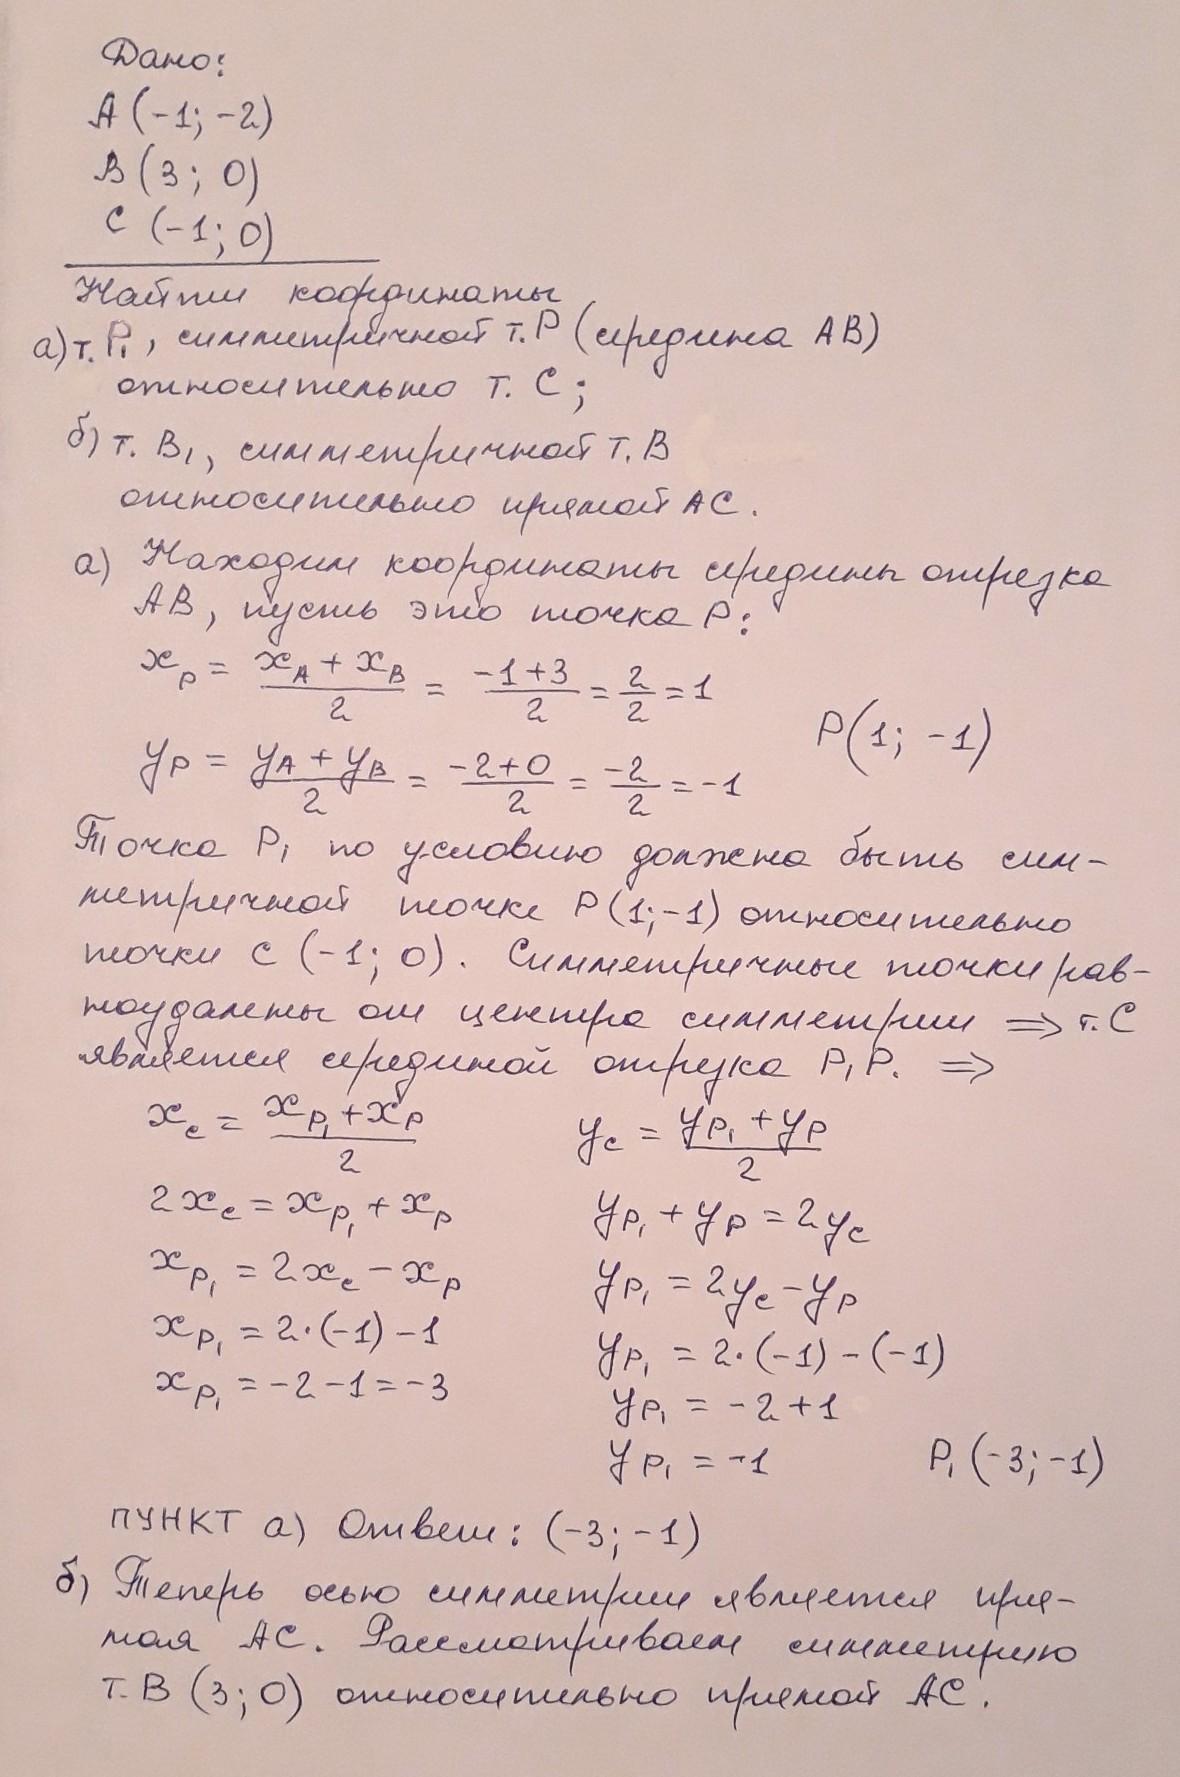 Дано:
A (-1; -2)
B (3; 0)
C (-1; 0)
Найти координаты
а) т. P₁, симметричной т. P (середина AB)
относительно т. C;
б) т. B₁, симметричной т. B
относительно прямой AC.
а) Находим координаты середины отрезка
AB, пусть это точка P:
x_P = (x_A + x_B)/2 = (-1+3)/2 = 2/2 = 1
P(1; -1)
y_P = (y_A + y_B)/2 = (-2+0)/2 = -2/2 = -1
Точка P₁ по условию должна быть сим-
метричной точке P (1; -1) относительно
точки C (-1; 0). Симметричные точки рав-
ноудалены от центра симметрии ⇒ т. C
является серединой отрезка P₁P. ⇒
x_C = (x_P₁ + x_P)/2 y_C = (y_P₁ + y_P)/2
2x_C = x_P₁ + x_P y_P₁ + y_P = 2y_C
x_P₁ = 2x_C - x_P y_P₁ = 2y_C - y_P
x_P₁ = 2·(-1) - 1 y_P₁ = 2·(-1) - (-1)
x_P₁ = -2 - 1 = -3 y_P₁ = -2 + 1
y_P₁ = -1 P₁ (-3; -1)
ПУНКТ а) Ответ: (-3; -1)
б) Теперь осью симметрии является пря-
мая AC. Рассматриваем симметрию
т. B (3; 0) относительно прямой AC.